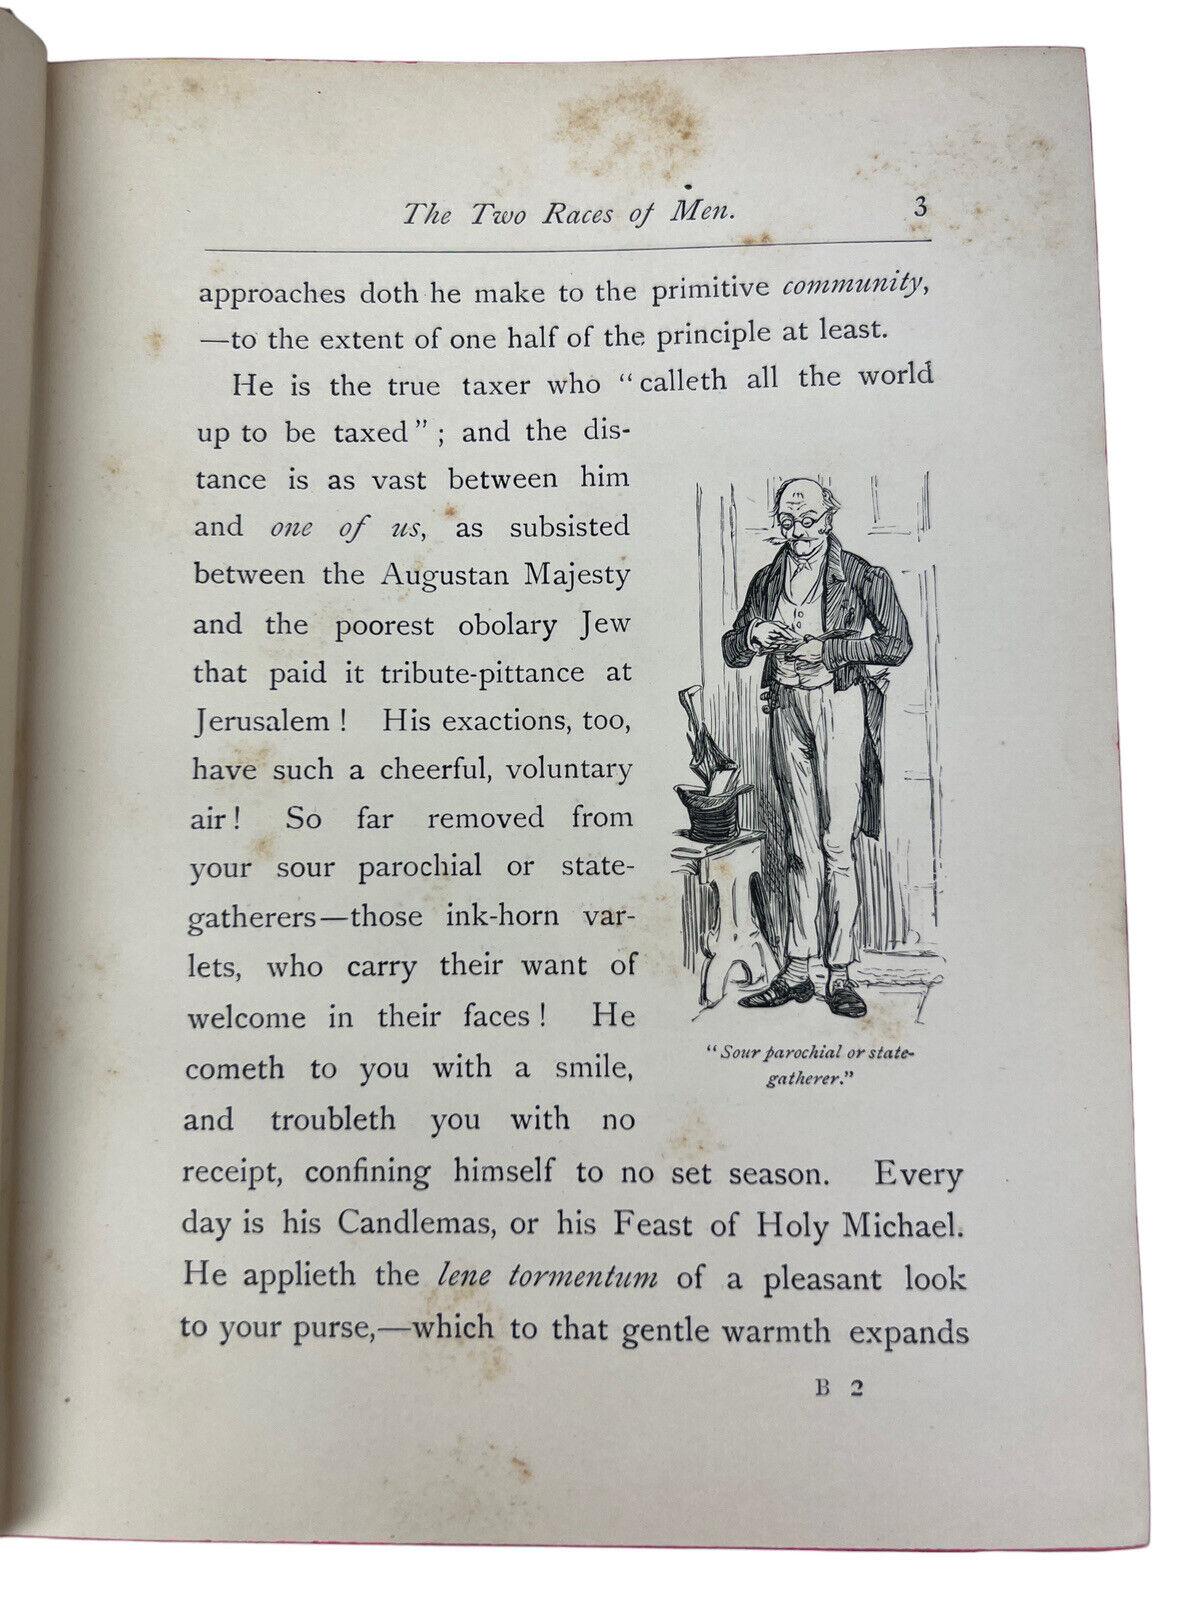 The Two Races of Men. 3
approaches doth he make to the primitive community,
—to the extent of one half of the principle at least.
He is the true taxer who “calleth all the world
up to be taxed”; and the dis-
tance is as vast between him
and one of us, as subsisted
between the Augustan Majesty
and the poorest obolary Jew
that paid it tribute-pittance at
Jerusalem! His exactions, too,
have such a cheerful, voluntary
air! So far removed from
your sour parochial or state-
gatherers—those ink-horn var-
lets, who carry their want of
welcome in their faces! He
cometh to you with a smile,
and troubleth you with no
receipt, confining himself to no set season. Every
day is his Candlemas, or his Feast of Holy Michael.
He applieth the lene tormentum of a pleasant look
to your purse,—which to that gentle warmth expands
“Sour parochial or state-
gatherer.”
B 2